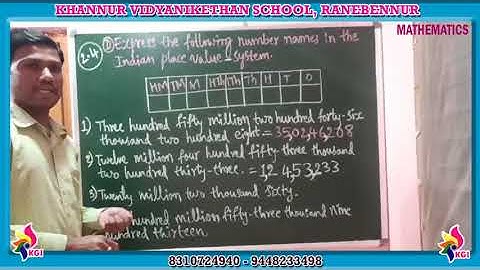 KHANNUR VIDYANIKETHAN SCHOOL, RANEBENNUR
MATHEMATICS
2.4 D) Express the following number names in the
Indian place value system.
HM TM M HTh TTh Th H T O
1) Three hundred fifty million two hundred forty-six
thousand two hundred eight = 35,02,46,208
2) Twelve million four hundred fifty three thousand
two hundred thirty-three. = 1,24,53,233
3) Twenty million two thousand sixty.
hundred million fifty-three thousand Nine
hundred thirteen
KGI
8310724940 - 9448233498
KGI